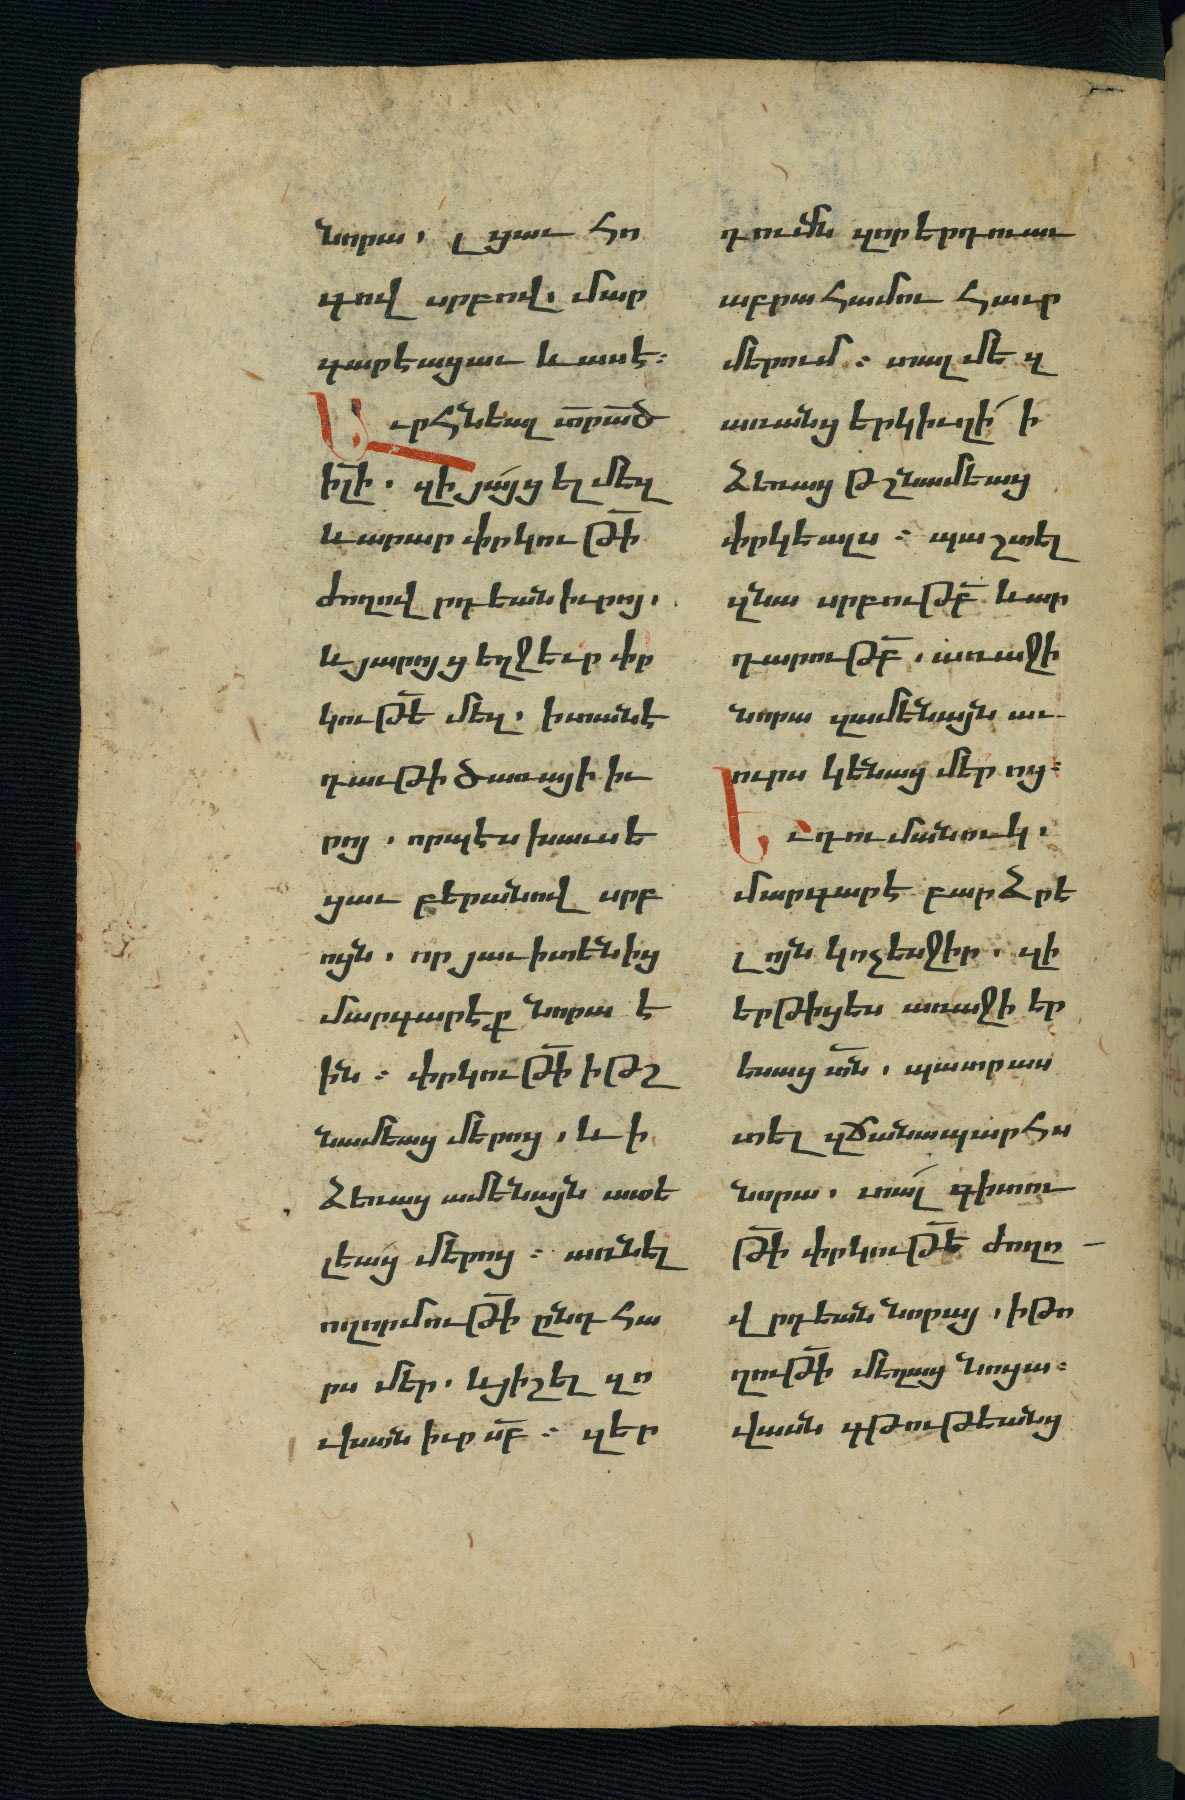 նորա, լցաւ հո
գով սրբով, մար
գարէացաւ և ասէ։
Աւրհնեալ տրած
իլի. զի յայց ել մեզ
և արար փրկութի
ժողովրդեան իւրոյ,
և յարոյց եղջեւր փր
կութե մեզ, ի տանէ
դաւթի ծառայի իւ
րոյ, որպէս խաւսե
ցաւ բերանով սրբ
ոյն, որ յաւիտենից
մարգարէք նորա է
ին։ փրկութի ի թշ
նամեաց մերոց, և ի
ձեռաց ամենայն ատե
լեաց մերոց։ առնել
ողորմութի ընդ հա
րս մեր. և յիշել զո
ւխտն իւր սբ։ զեր
դումն զոր երդուաւ
աբրահամու հաւր
մերում։ տալ մեզ
առանց երկիւղի ի
ձեռաց թշնամեաց
փրկեալս։ պաշտել
զնա սրբութբ և ար
դարութբ, առաջի
նորա զամենայն աւ
ուրս կենաց մերոց։
Եւ դու մանուկ,
մարգարէ բարձրե
լոյն կոչեսջիր, զի
երթիցես առաջի եր
եսաց տն, պատրաս
տել զճանապարհս
նորա, տալ գիտու
թի փրկութե ժողո
վրդեան նորայ, ի թո
ղութի մեղաց նոցա։
վասն գթութեանց